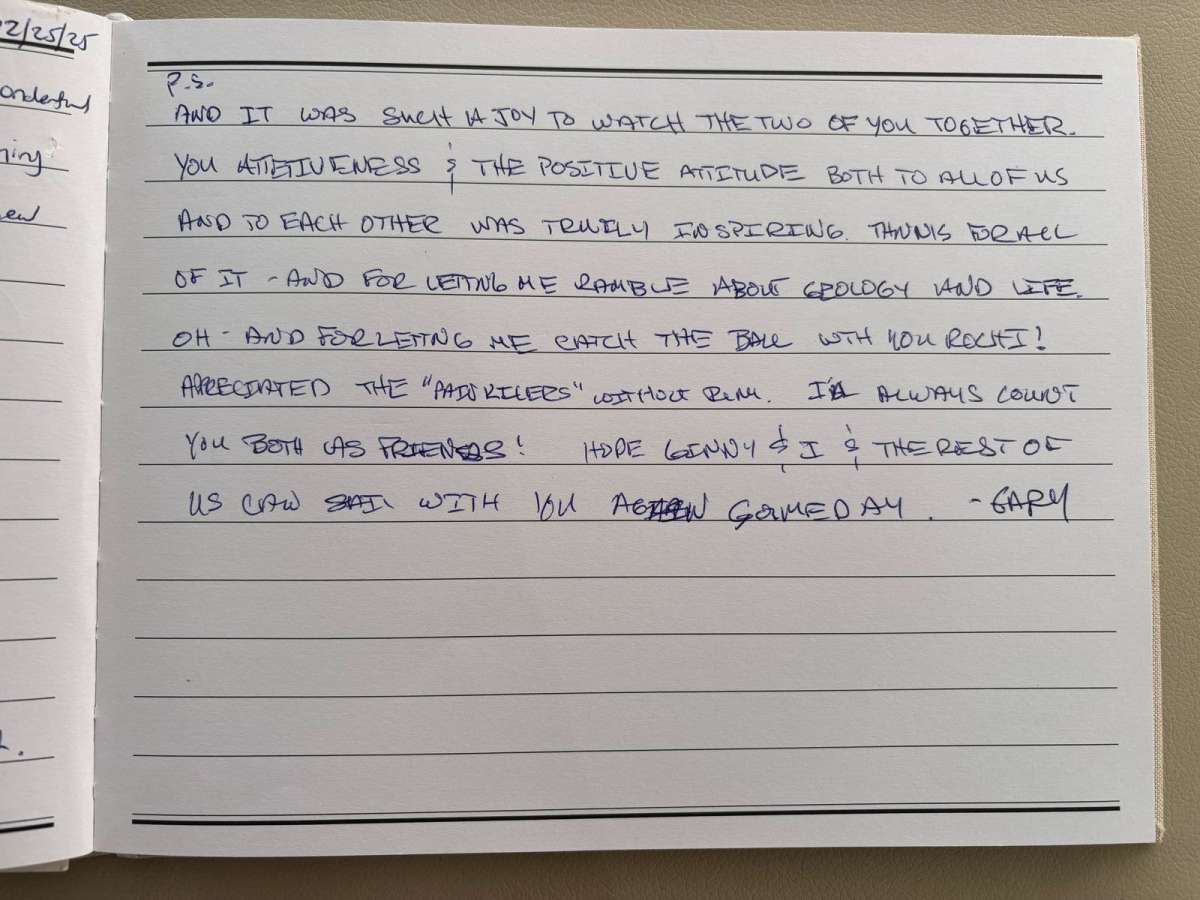 2/25/25
onderful
ning
ew
P.S.
AND IT WAS SUCH A JOY TO WATCH THE TWO OF YOU TOGETHER.
YOU ATTETIVENESS & THE POSITIVE ATTITUDE BOTH TO ALL OF US
AND TO EACH OTHER WAS TRUILY INSPIRING. THANKS FOR ALL
OF IT - AND FOR LETTING ME RAMBLE ABOUT GEOLOGY AND LIFE.
OH - AND FOR LETTNG ME CATCH THE BALL WTH YOU ROCHI!
APPRECIATED THE "PAINKILLERS" WITHOUT RUM. I'LL ALWAYS COUNT
YOU BOTH AS FRIENDS! HOPE GINNY & I & THE REST OF
US CAN SAIL WITH YOU AGAIN SOMEDAY. - GARY